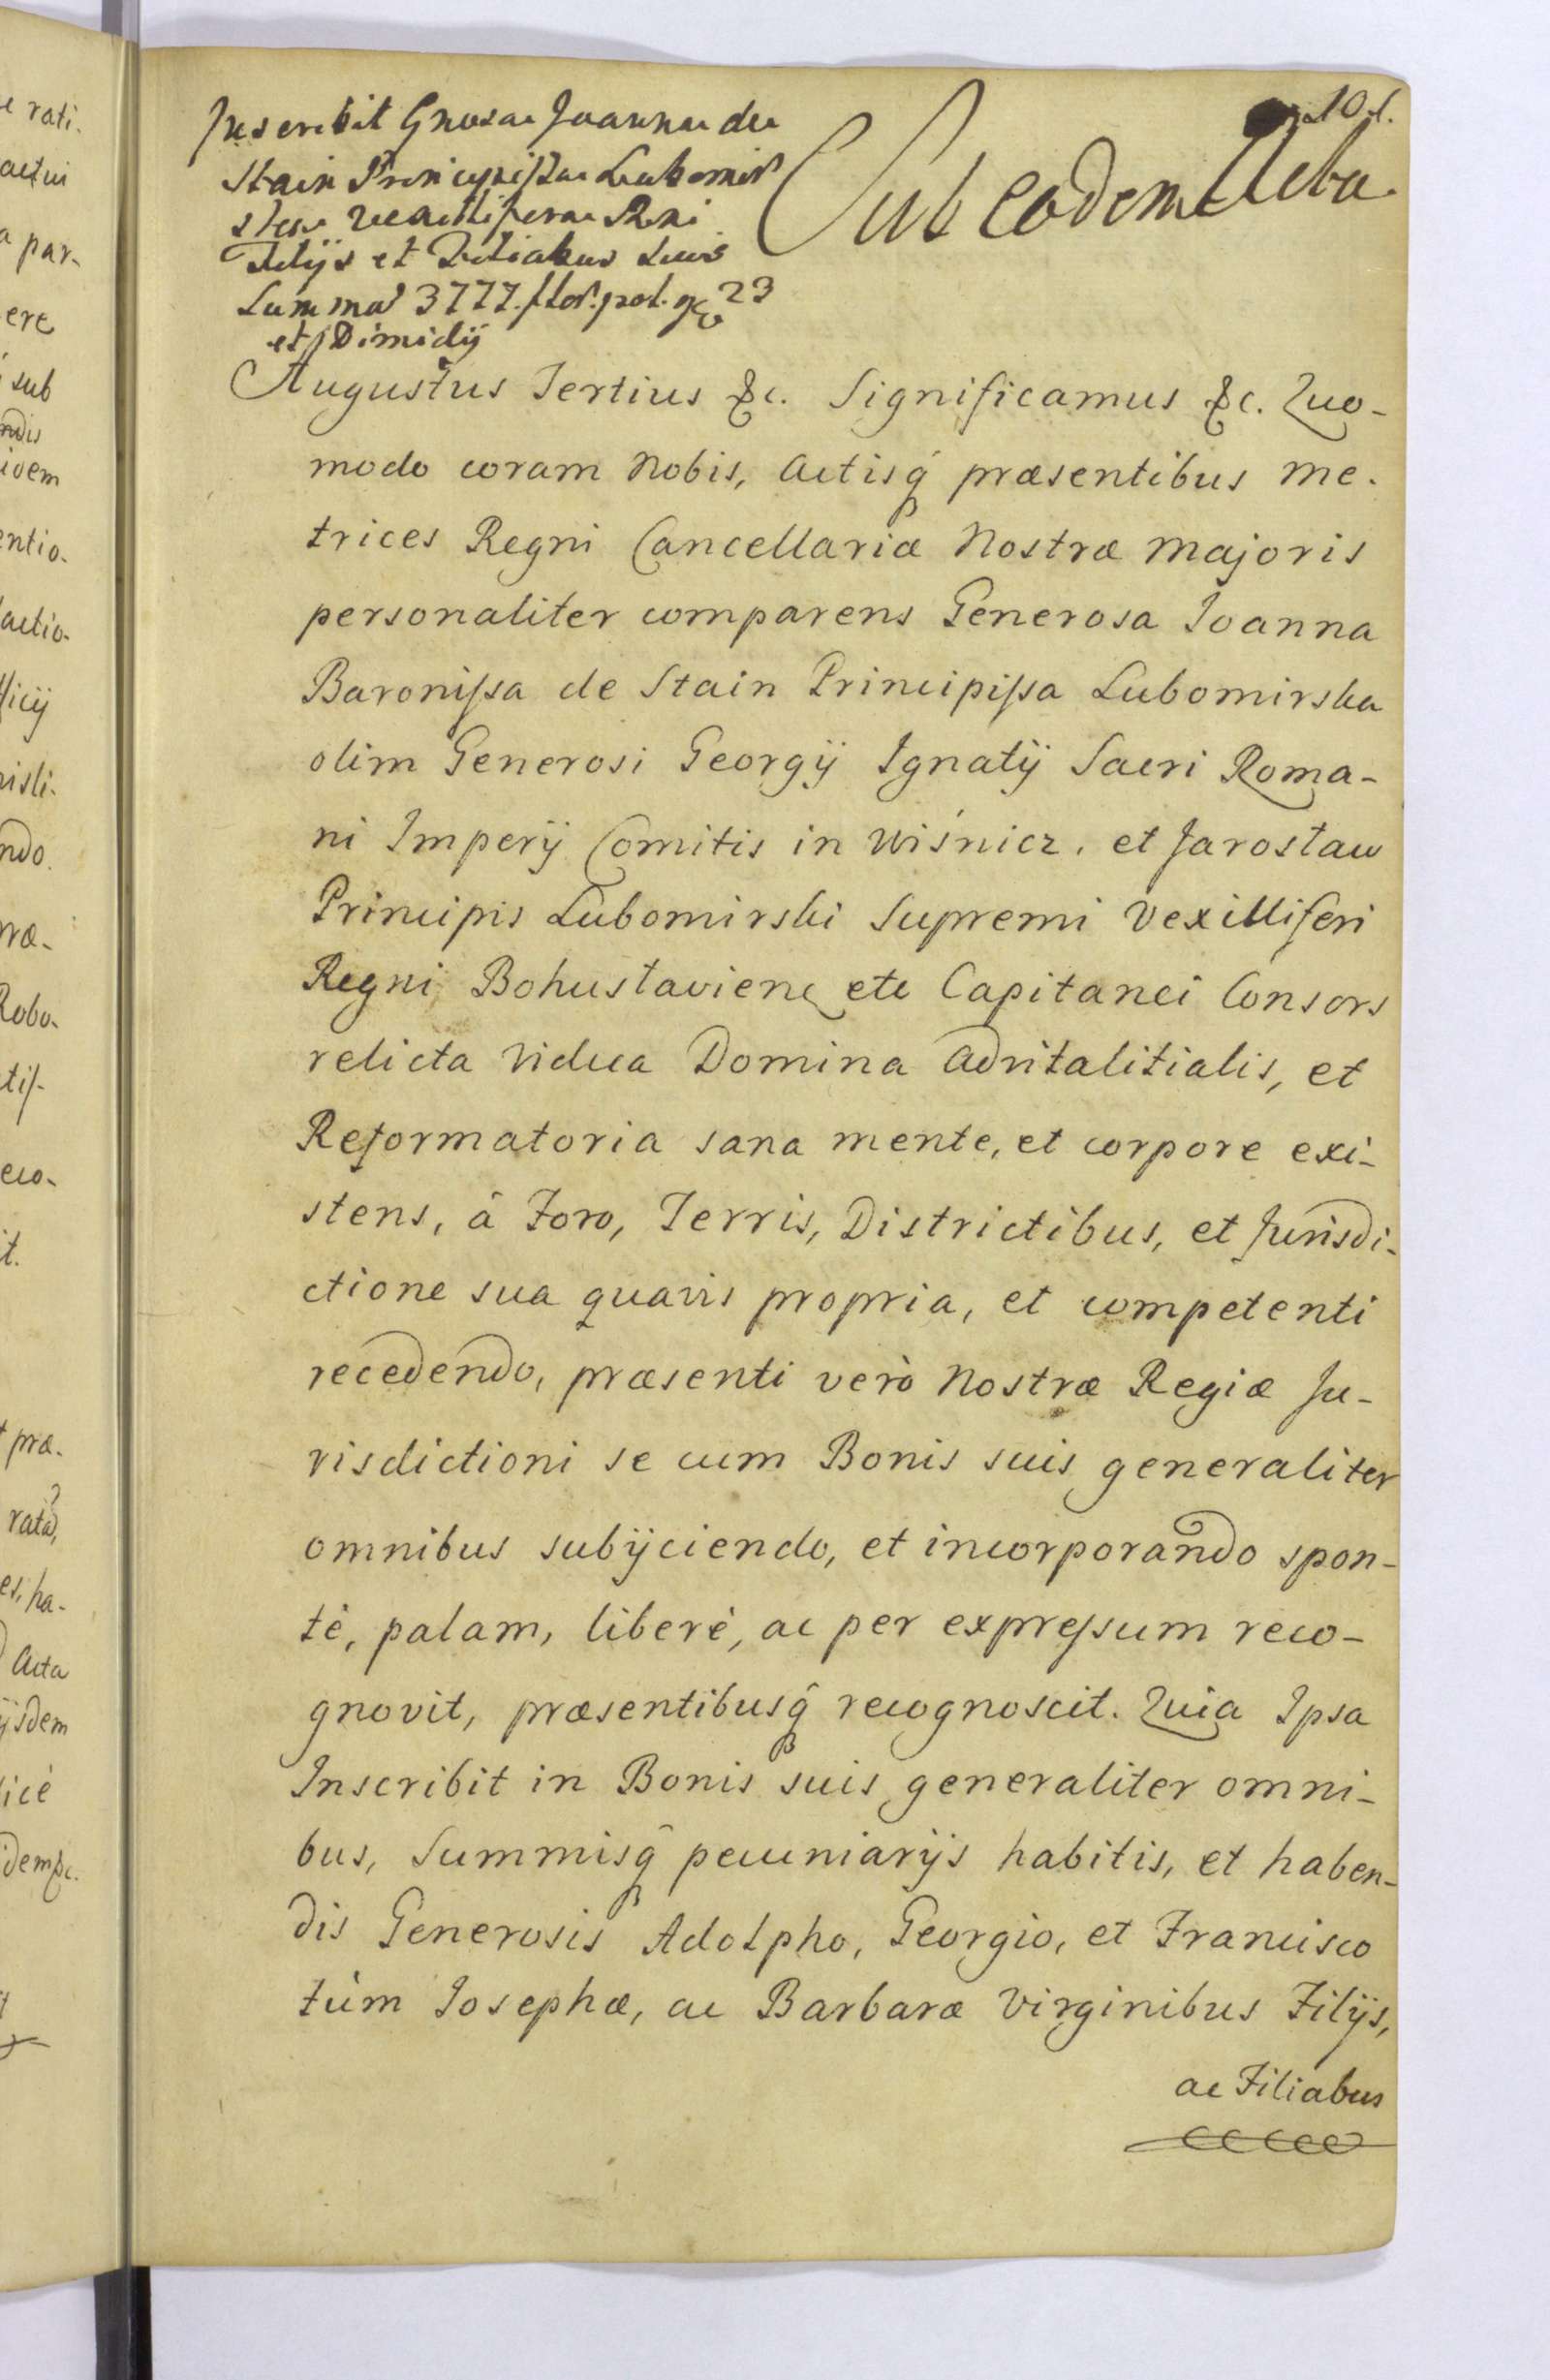 101.
Inscribit Gnosa Joanna de
Stain Principissa Lubomir
ska vexillifera Rni
Filijs et Filiabus suis
Summa 3777. flor. pol. gr 23
et Dimidij
Sub eodem Actu.
Augustus Tertius &c. Significamus &c. Quo-
modo coram Nobis, Actisq́ præsentibus Me-
trices Regni Cancellariæ Nostræ Majoris
personaliter comparens Generosa Joanna
Baronissa de Stain Principissa Lubomirska
olim Generosi Georgij Ignatij Sacri Roma-
ni Imperij Comitis in Wiśnicz, et Jarosław
Principis Lubomirski Supremi Vexilliferi
Regni Bohuslavien etc Capitanei Consors
relicta vidua Domina Advitalitialis, et
Reformatoria sana mente, et corpore exi-
stens, â Foro, Terris, Districtibus, et Jurisdi-
ctione sua quavis propria, et competenti
recedendo, præsenti verò Nostræ Regiæ Ju-
risdictioni se cum Bonis suis generaliter
omnibus subijciendo, et incorporando spon-
tè, palam, liberè, ac per expressum reco-
gnovit, præsentibusq̂ recognoscit. Quia Ipsa
Inscribit in Bonis suis generaliter omni-
bus, Summisq̂ pecuniarijs habitis, et haben-
dis Generosis Adolpho, Georgio, et Francisco
tùm Josephæ, ac Barbaræ Virginibus Filijs,
ac Filiabus